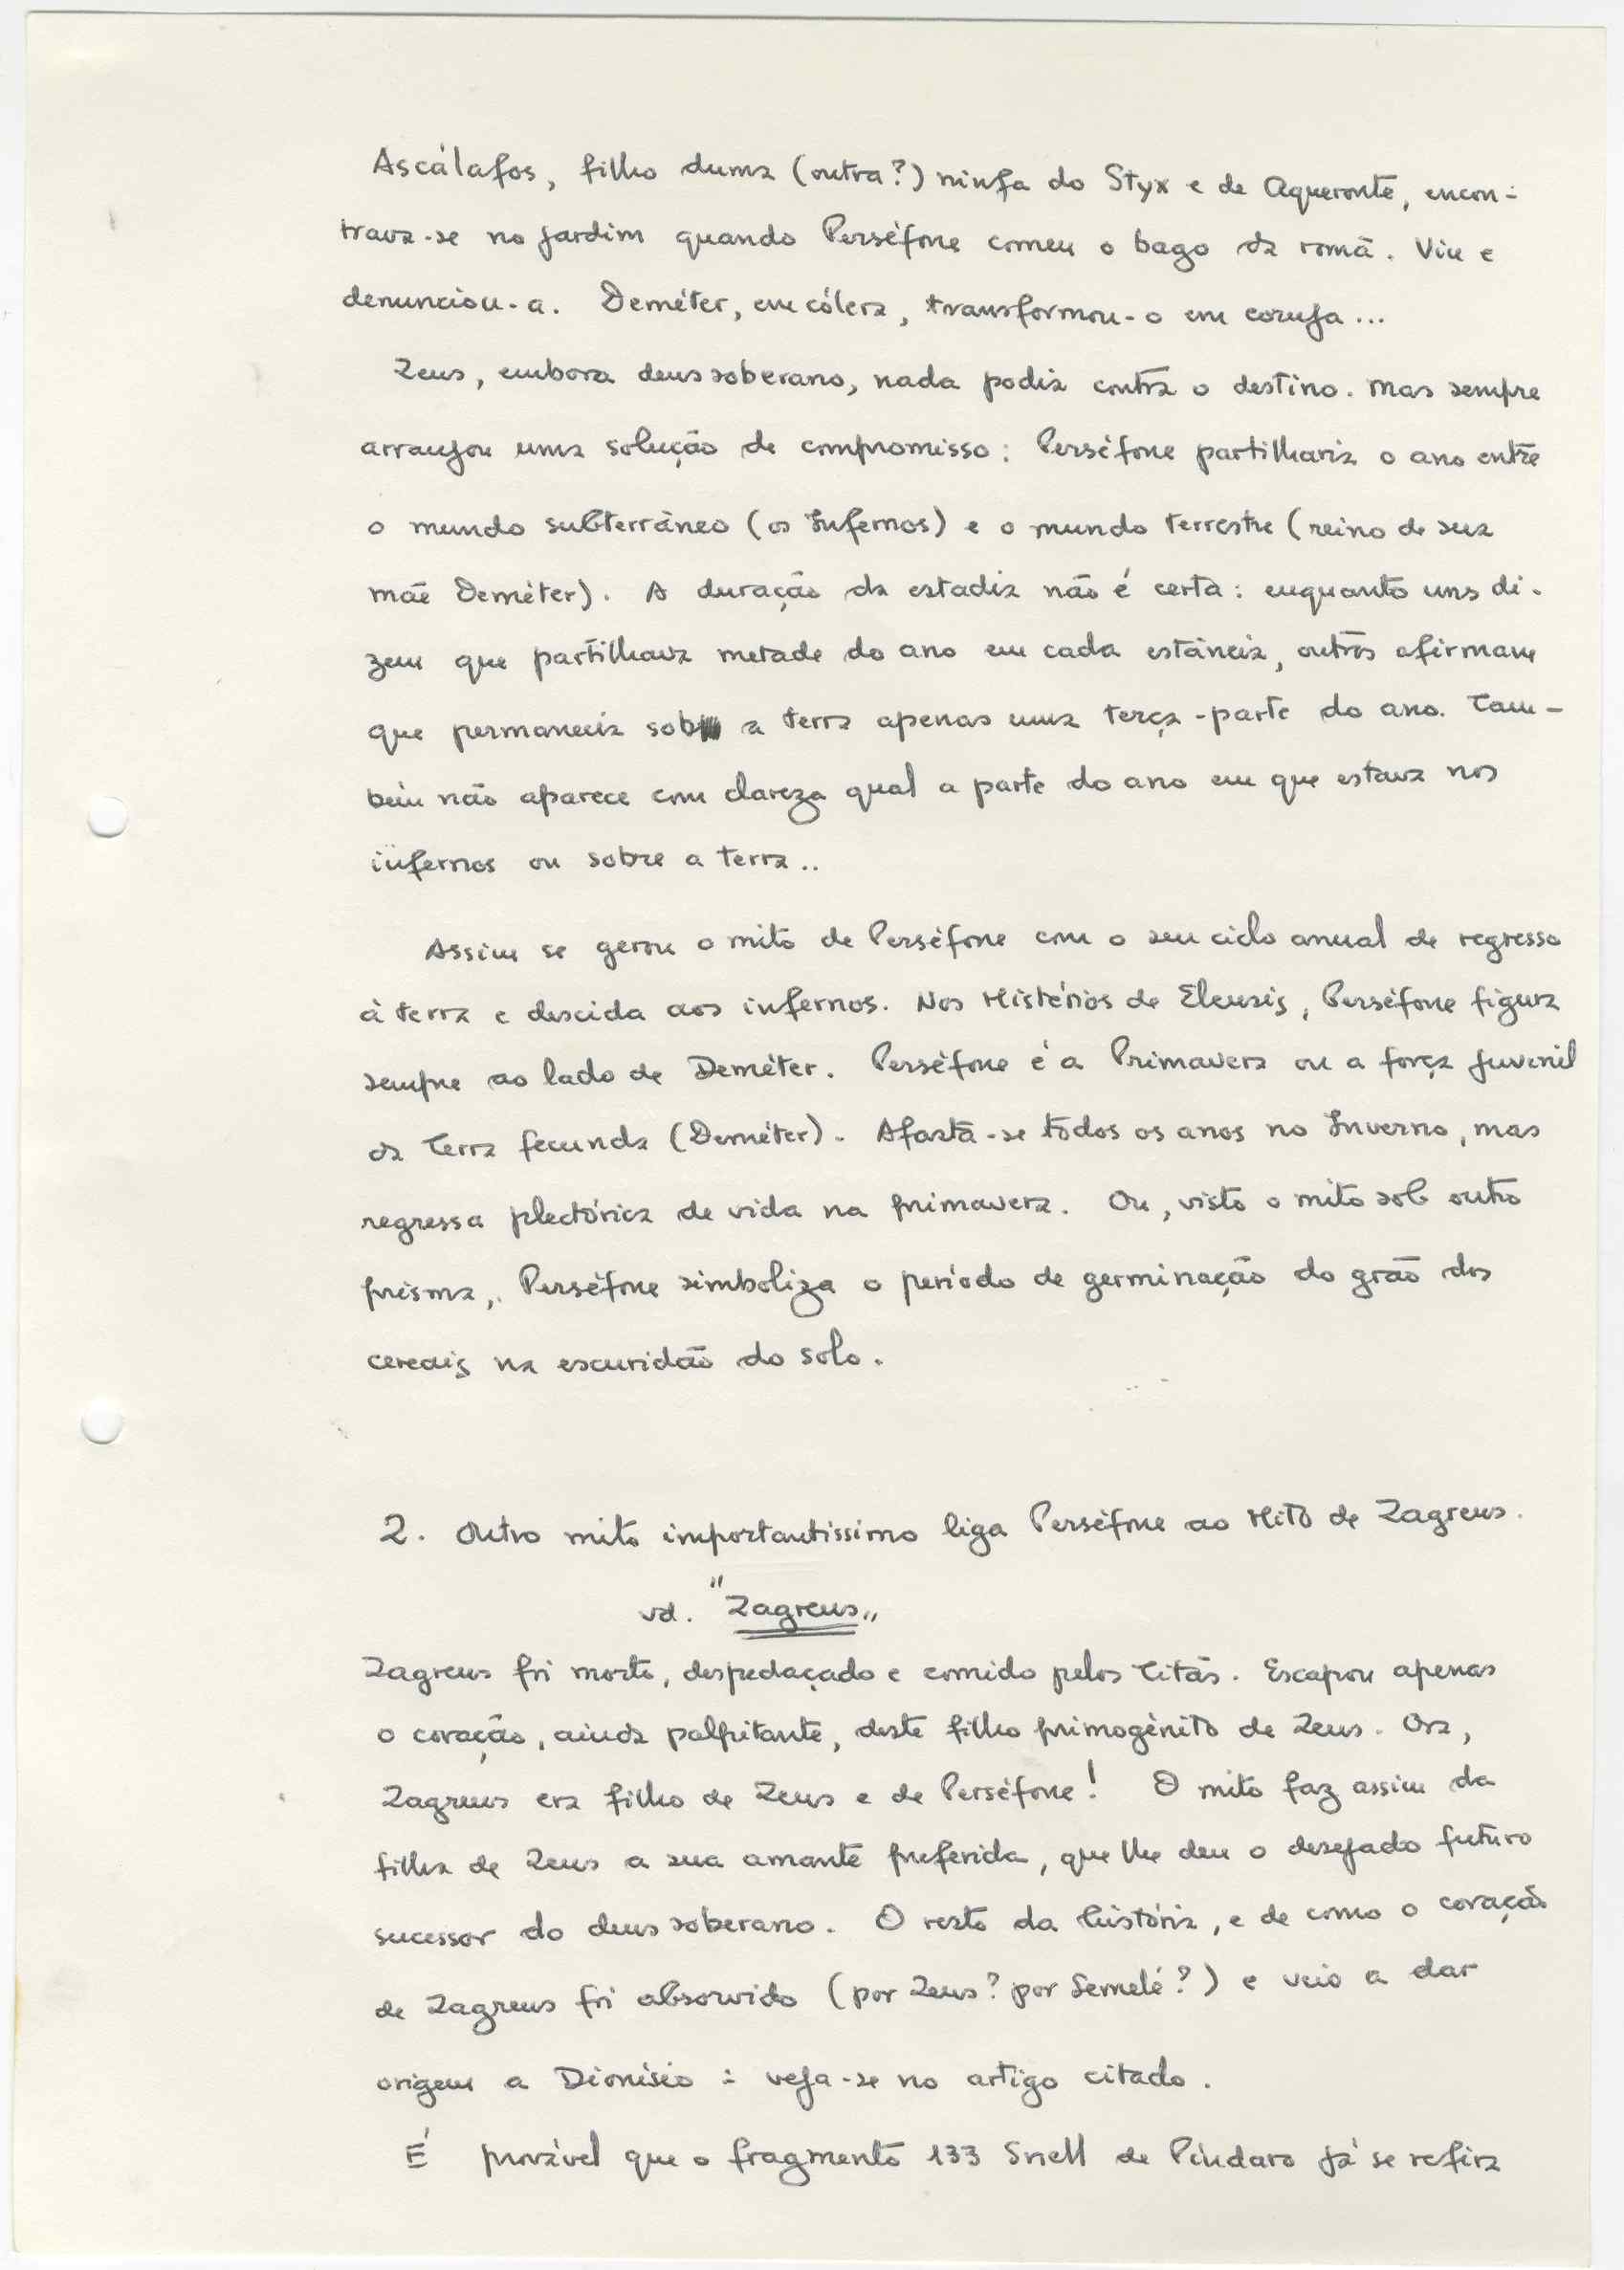 Ascálafos, filho duma (outra?) ninfa do Styx e de Aqueronte, encon-
trava-se no jardim quando Perséfone comeu o bago da romã. Viu e
denunciou-a. Deméter, em cólera, transformou-o em coruja...
Zeus, embora deus soberano, nada podia contra o destino. Mas sempre
arranjou uma solução de compromisso: Perséfone partilharia o ano entre
o mundo subterrâneo (os Infernos) e o mundo terrestre (reino de sua
mãe Deméter). A duração da estadia não é certa: enquanto uns di-
zem que partilhava metade do ano em cada estância, outros afirmam
que permanecia sob a terra apenas uma terça-parte do ano. Tam-
bém não aparece com clareza qual a parte do ano em que estava nos
infernos ou sobre a terra..
Assim se gerou o mito de Perséfone com o seu ciclo anual de regresso
à terra e descida aos infernos. Nos Mistérios de Eleusis, Perséfone figura
sempre ao lado de Deméter. Perséfone é a Primavera ou a força juvenil
da Terra fecunda (Deméter). Afasta-se todos os anos no Inverno, mas
regressa plectórica de vida na primavera. Ou, visto o mito sob outro
prisma, Perséfone simboliza o período de germinação do grão dos
cereais na escuridão do solo.
2. Outro mito importantíssimo liga Perséfone ao Mito de Zagreus.
vd. "Zagreus"
Zagreus foi morto, despedaçado e comido pelos Titãs. Escapou apenas
o coração, ainda palpitante, deste filho primogénito de Zeus. Ora,
Zagreus era filho de Zeus e de Perséfone! O mito faz assim da
filha de Zeus a sua amante preferida, que lhe deu o desejado futuro
sucessor do deus soberano. O resto da história, e de como o coração
de Zagreus foi absorvido (por Zeus? por Semelé?) e veio a dar
origem a Dionísio : veja-se no artigo citado.
É provável que o fragmento 133 Snell de Píndaro já se refira